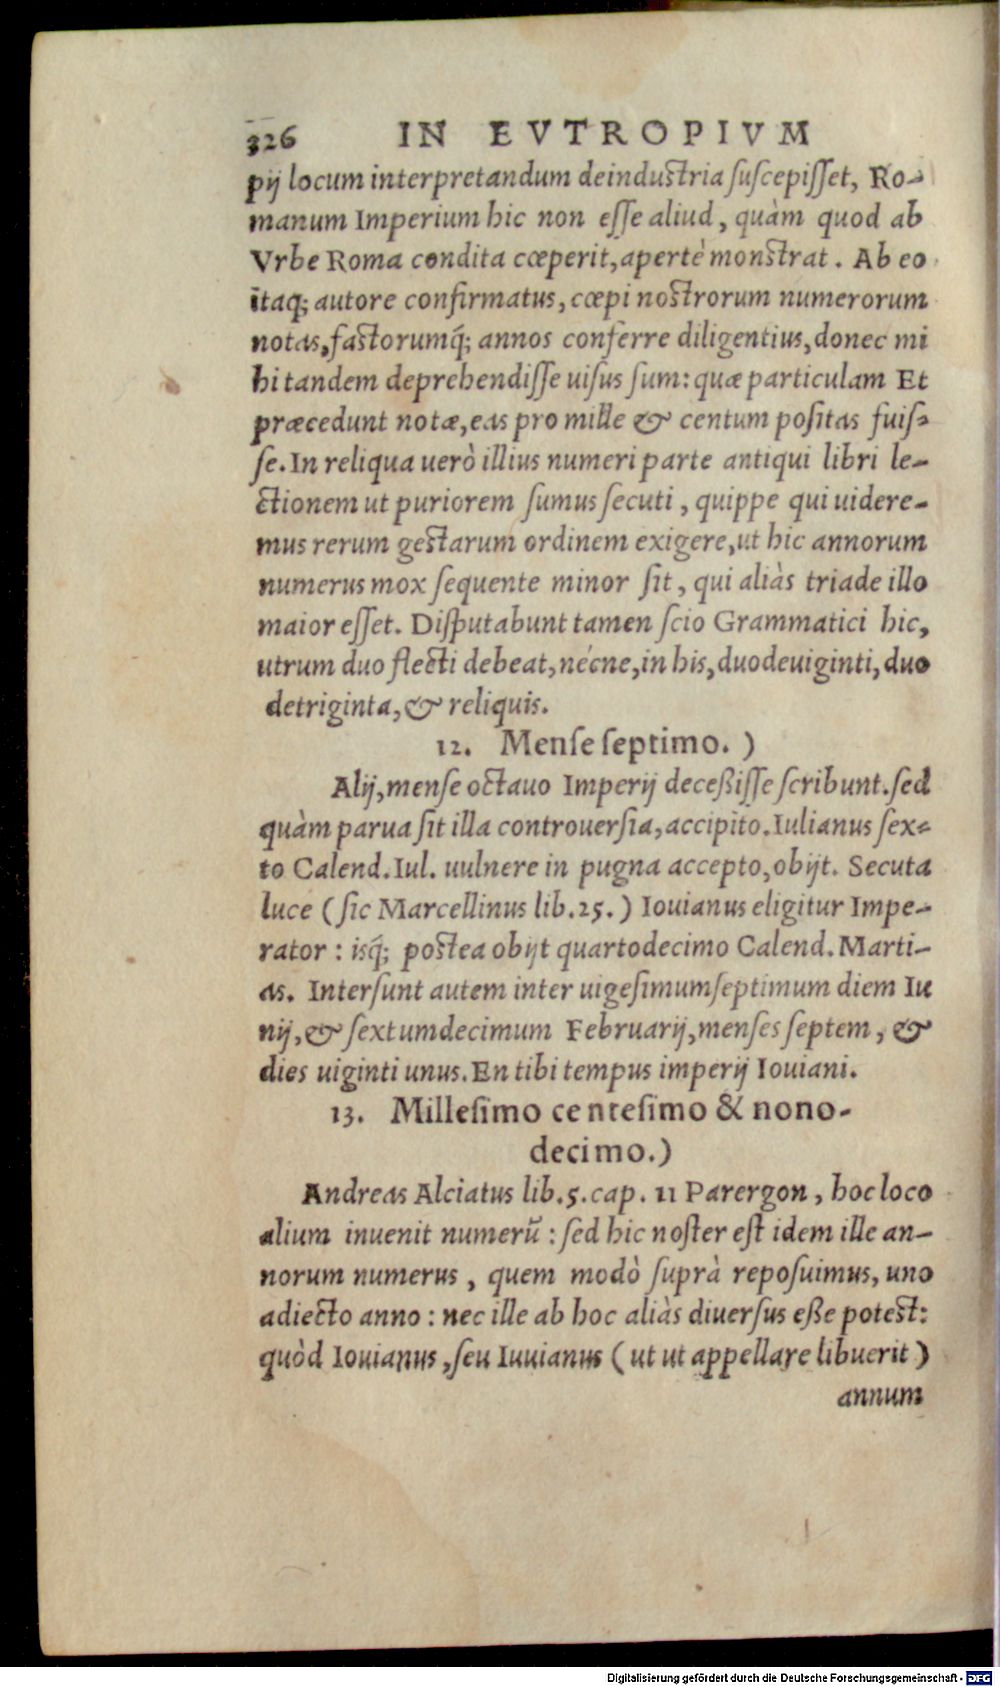 326 IN EVTROPIVM
pij locum interpretandum deindustria ſuſcepiſſet, Ro-
manum Imperium hic non eſſe aliud, quàm quod ab
Vrbe Roma condita cœperit, apertè monstrat. Ab eo
itaq; autore confirmatus, cœpi nostrorum numerorum
notas, fastorumq́; annos conferre diligentius, donec mi
hi tandem deprehendiſſe uiſus ſum: quæ particulam Et
præcedunt notæ, eas pro mille & centum poſitas fuiſ-
ſe. In reliqua uerò illius numeri parte antiqui libri le-
ctionem ut puriorem ſumus ſecuti, quippe qui uidere-
mus rerum gestarum ordinem exigere, ut hic annorum
numerus mox ſequente minor ſit, qui aliàs triade illo
maior eſſet. Diſputabunt tamen ſcio Grammatici hic,
utrum duo flecti debeat, nécne, in his, duodeuiginti, duo
detriginta, & reliquis.
12. Menſe ſeptimo. )
Alij, menſe octauo Imperij deceßiſſe ſcribunt. ſed
quàm parua ſit illa controuerſia, accipito. Iulianus ſex-
to Calend. Iul. uulnere in pugna accepto, obijt. Secuta
luce (ſic Marcellinus lib. 25.) Iouianus eligitur Impe-
rator: isq́; postea obijt quartodecimo Calend. Marti-
as. Interſunt autem inter uigeſimumſeptimum diem Iu
nij, & ſextumdecimum Februarij, menſes ſeptem, &
dies uiginti unus. En tibi tempus imperij Iouiani.
13. Milleſimo centeſimo & nono-
decimo.)
Andreas Alciatus lib. 5. cap. 11 Parergon, hoc loco
alium inuenit numerū: ſed hic noſter eſt idem ille an-
norum numerus, quem modò ſuprà repoſuimus, uno
adiecto anno: nec ille ab hoc aliàs diuerſus eße potest:
quòd Iouianus, ſeu Iuuianus (ut ut appellare libuerit)
annum
Digitalisierung gefördert durch die Deutsche Forschungsgemeinschaft - DFG